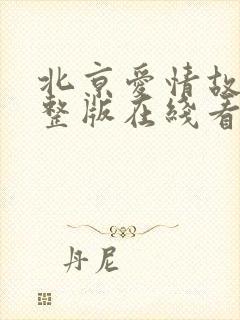 北京爱情故
整版在线看
丹尼